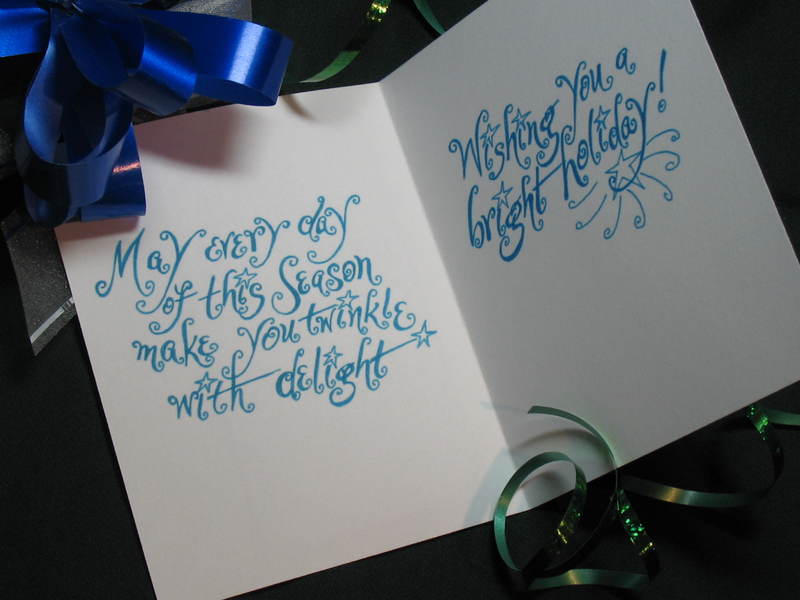 May every day
of this Season
make you twinkle
with delight
Wishing you a
bright holiday!